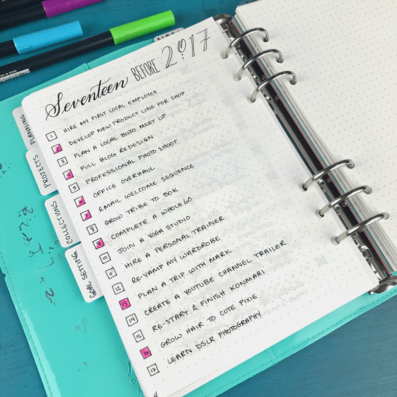 Seventeen BEFORE 2017
1 HIRE MY FIRST LOCAL EMPLOYEE
DEVELOP NEW PRODUCT LINE FOR SHOP
3 PLAN A LOCAL BUJO MEET UP
FULL BLOG REDESIGN
5 PROFESSIONAL PHOTO SHOOT
OFFICE OVERHAUL
EMAIL WELCOME SEQUENCE
8 GROW TRIBE TO 80K
COMPLETE A WHOLE 30
10 JOIN A YOGA STUDIO
11 HIRE A PERSONAL TRAINER
12 RE-VAMP MY WARDROBE
13 PLAN A TRIP WITH MARK
14 CREATE A YOUTUBE CHANNEL TRAILER
15 RE-START & FINISH KONMARI
16 GROW HAIR TO CUTE PIXIE
17 LEARN DSLR PHOTOGRAPHY
PLANNING
PROJECTS
COLLECTIONS
GOAL SETTING